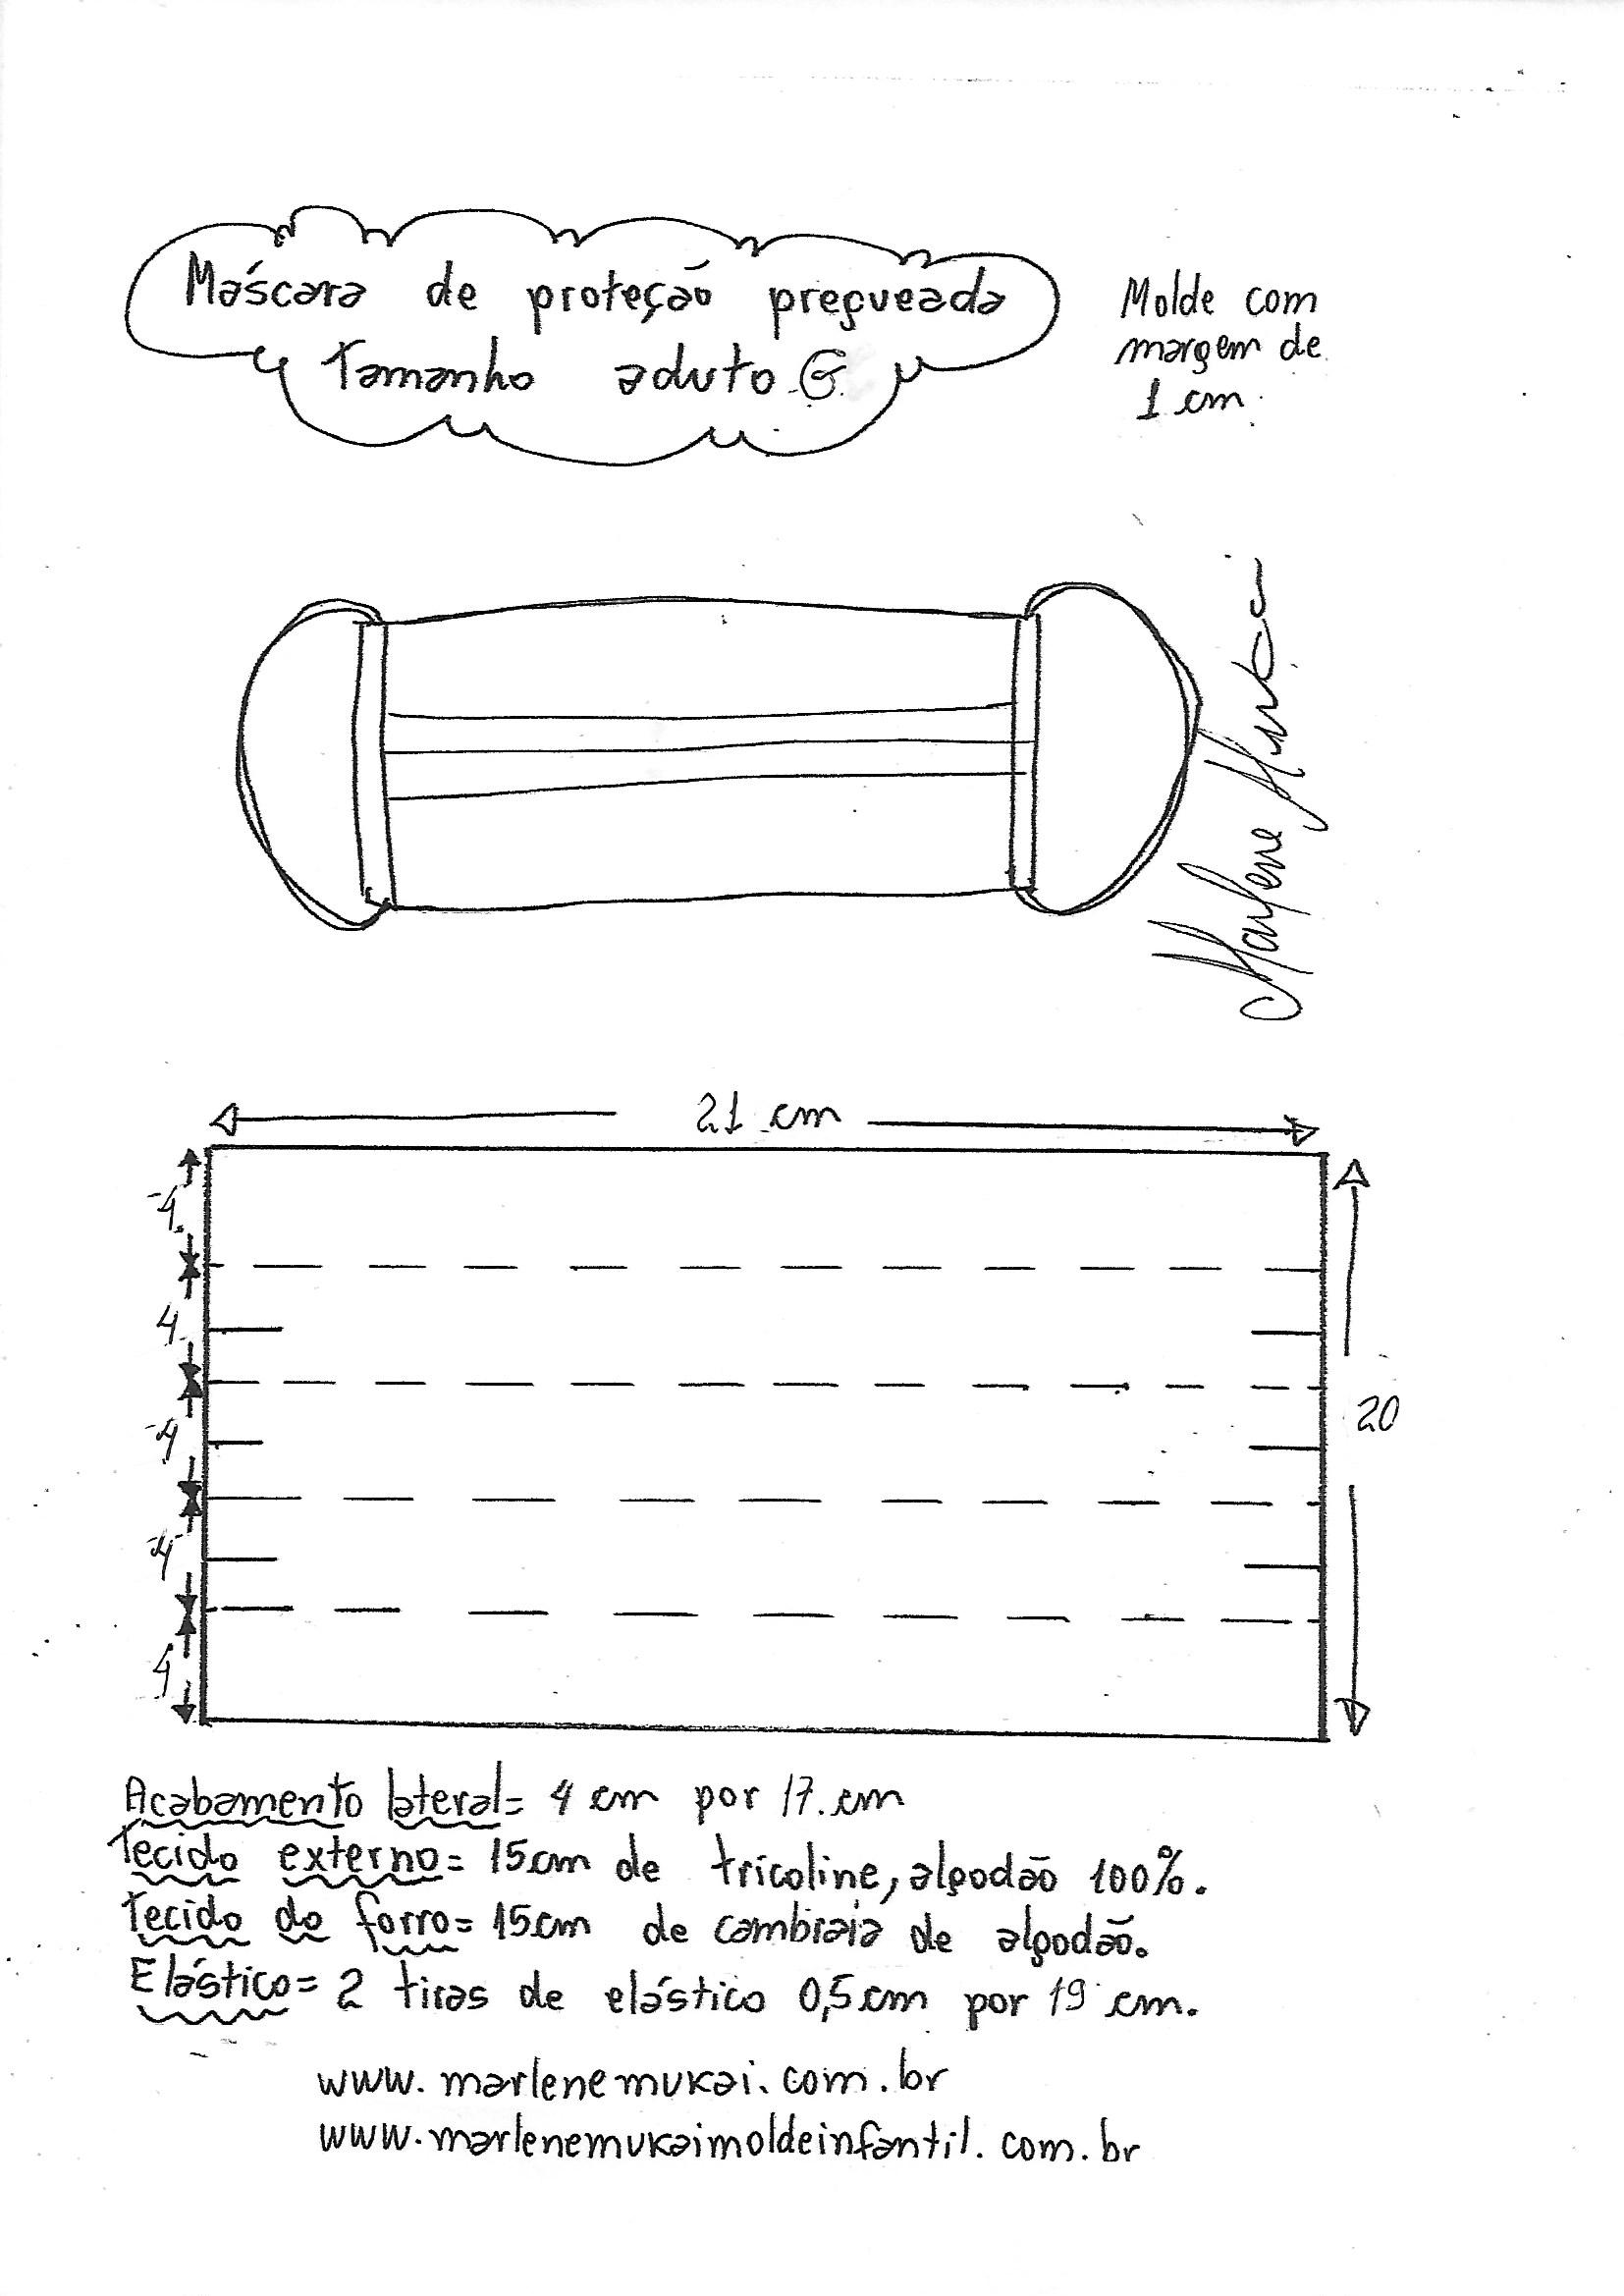 Máscara de proteção pregueada
Tamanho aduto G
Molde com
margem de
1 cm
Marlene Mukai
21 cm
4
4
4
4
4
20
Acabamento lateral= 4 cm por 17 cm
Tecido externo= 15cm de tricoline, algodão 100%.
Tecido do forro= 15cm de cambraia de algodão.
Elástico= 2 tiras de elástico 0,5cm por 19 cm.
www.marlenemukai.com.br
www.marlenemukaimoldeinfantil.com.br